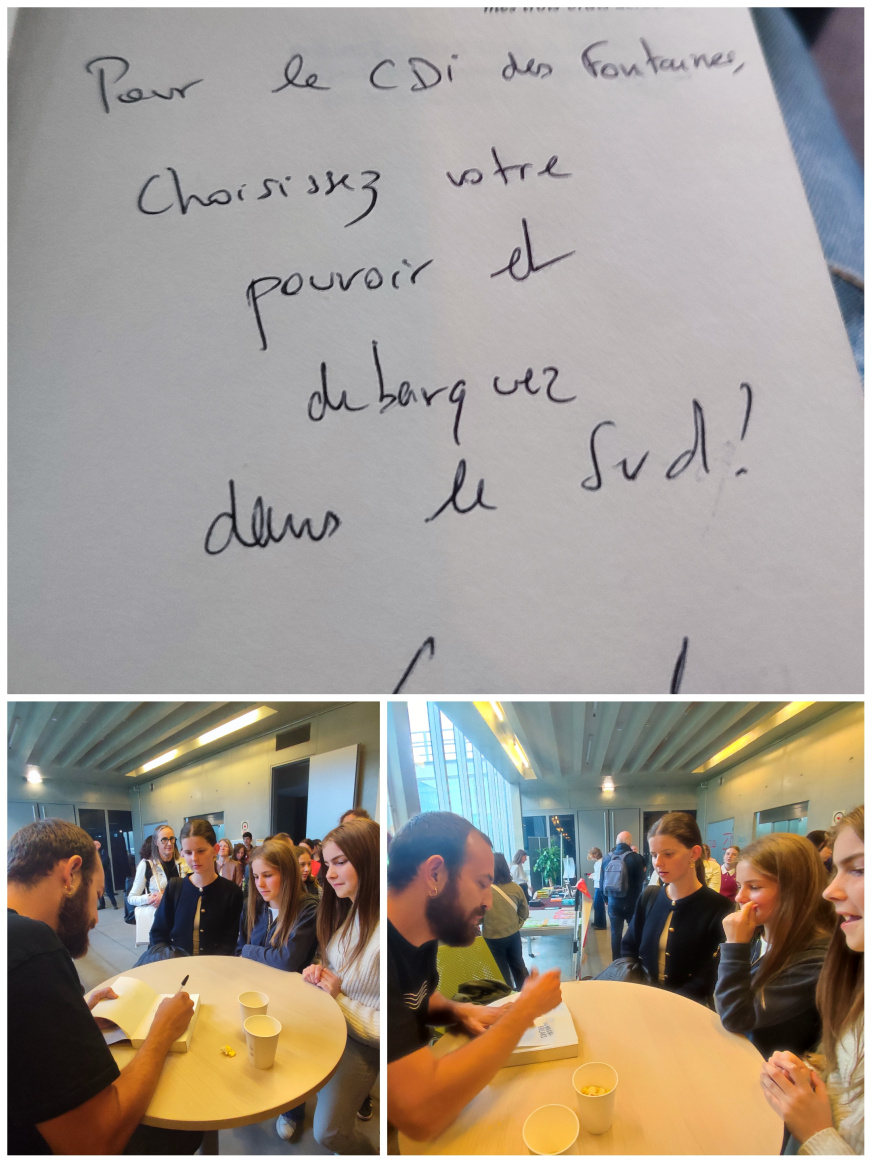 mes trois
Pour le CDi des Fontaines,
Choisissez votre
pouvoir et
debarquez
dans le Sud!